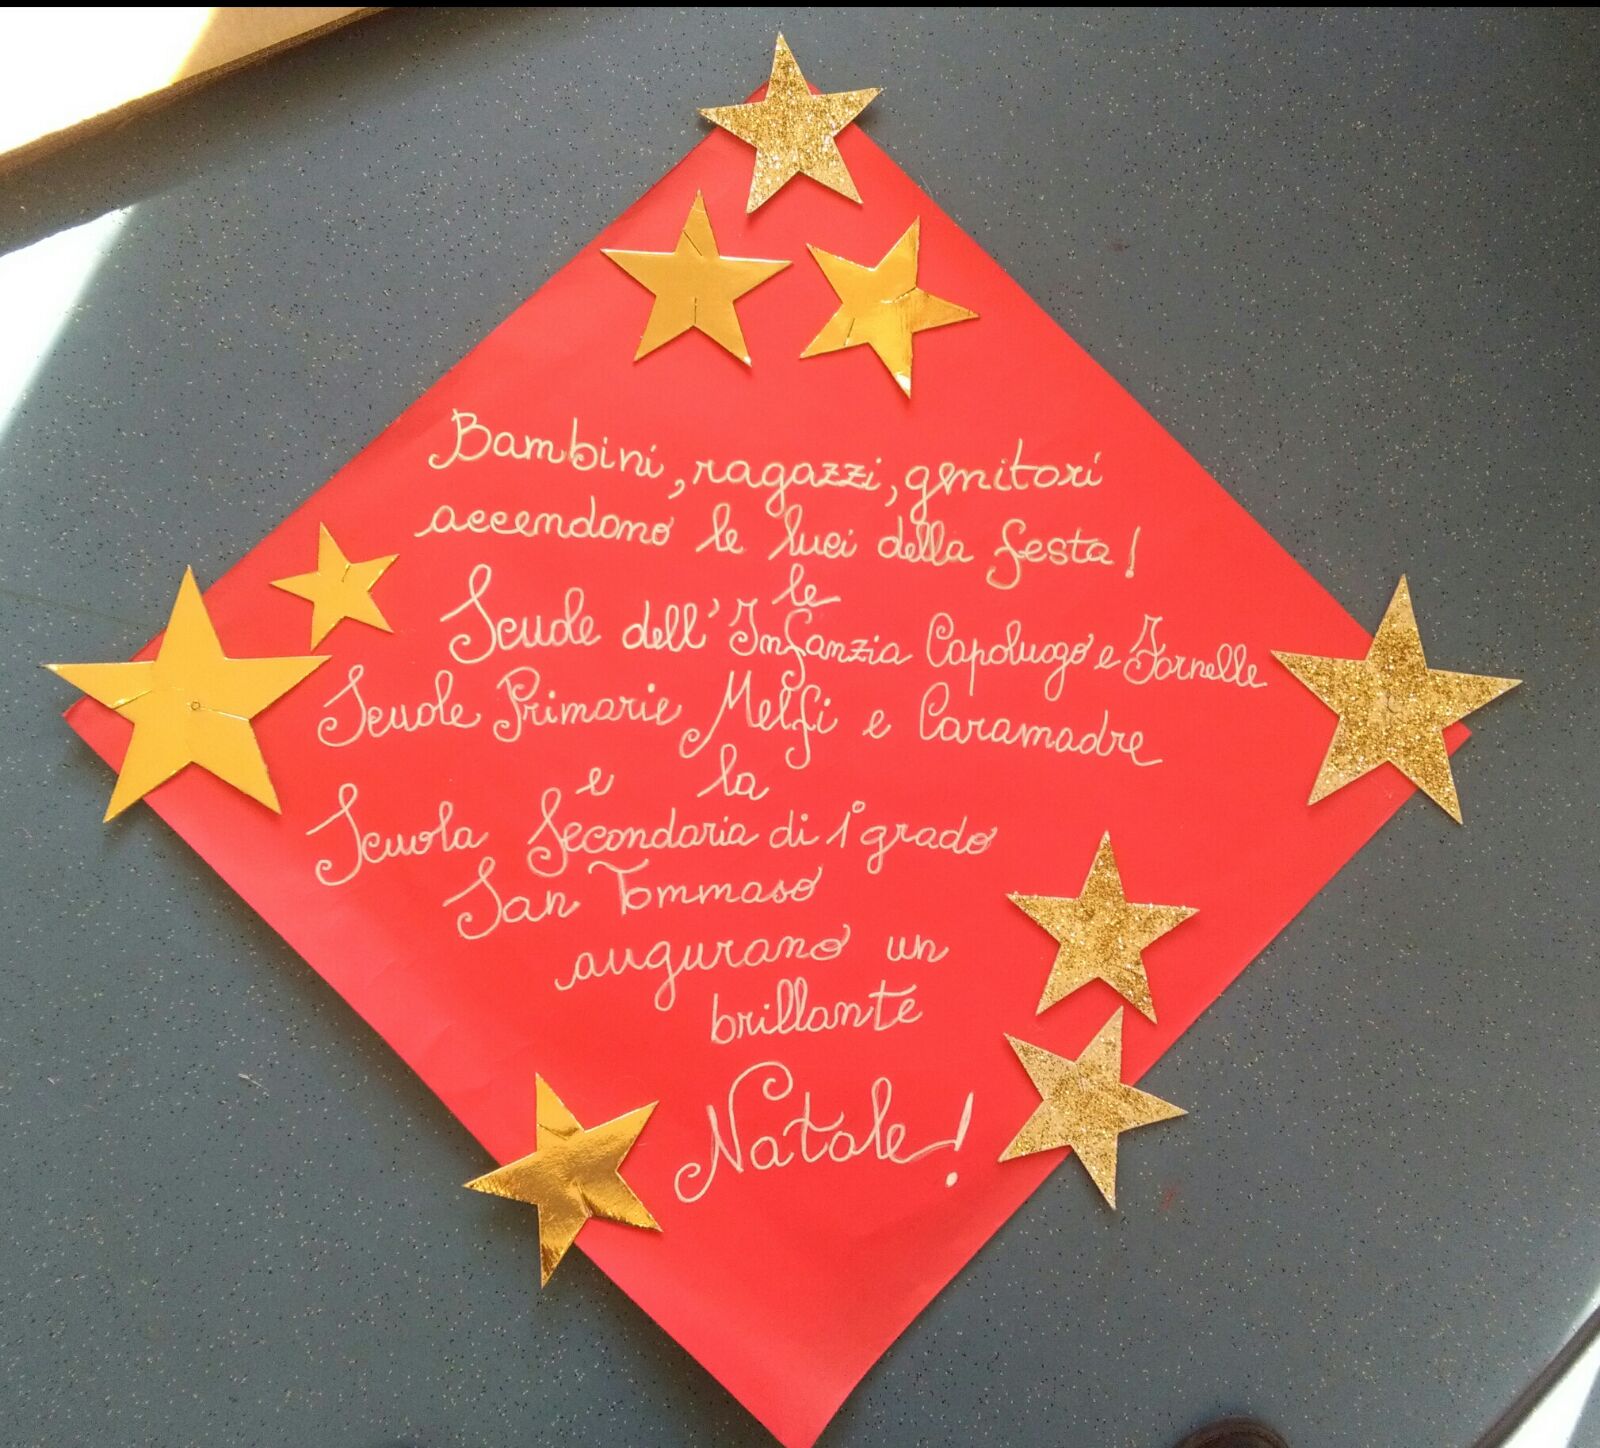 Bambini, ragazzi, genitori
accendono le luci della festa!
le
Scuole dell'Infanzia Capoluogo e Fornelle
Scuole Primarie Melfi e Caramadre
e la
Scuola Secondaria di 1° grado
San Tommaso
augurano un
brillante
Natale!